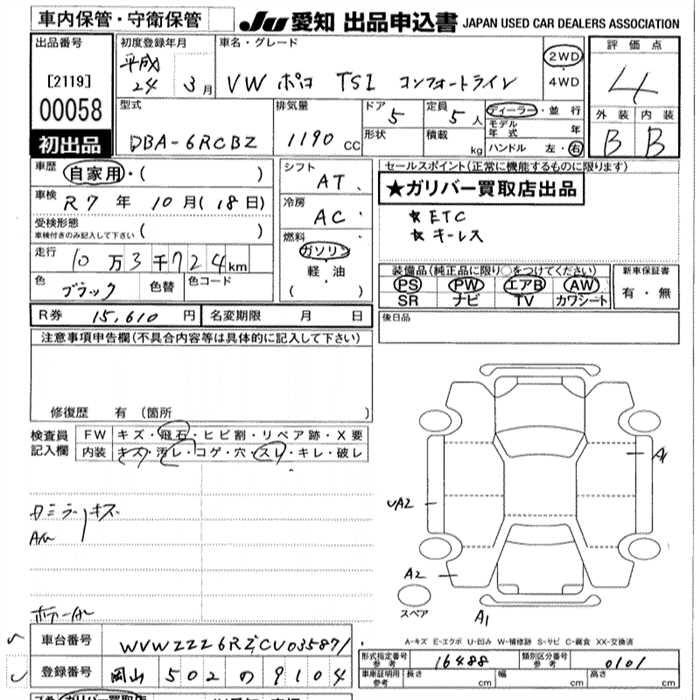 車内保管・守衛保管
JU 愛知 出品申込書 JAPAN USED CAR DEALERS ASSOCIATION
出品番号 [2119] 00058 初出品
初度登録年月 平成 24 3月
車名・グレード VW ポロ TSI コンフォートライン
2WD・4WD
評価点 4
外装 B 内装 B
型式 DBA-6RCBZ
排気量 1190 CC
ドア 5 形状
定員 5人 積載 kg
ディーラー・並行
モデル年式 年
ハンドル 左・右
車歴 自家用・( )
車検 R7 年 10月(18日)
受検形態 車検付きのみ記入して下さい ( )
走行 10万3千724km
色 ブラック 色替 色コード
シフト AT
冷房 AC
燃料 ガソリン 軽・油 ( )
セールスポイント(正常に機能するものに限ります)
★ガリバー買取店出品
★ETC
★キーレス
装備品(純正品に限り○をつけてください)
PS PW エアB AW
SR ナビ TV カワシート
新車保証書 有・無
R券 15,610 円 名変期限 月 日
後日品
注意事項申告欄(不具合内容等は具体的に記入して下さい)
修復歴 有 (箇所 )
検査員記入欄
FW キズ・飛石・ヒビ割・リペア跡・X要
内装 キズ・汚レ・コゲ・穴・スレ・キレ・破レ
キズ
A1
UA2
A2
A1
スペア
A-キズ E-エクボ U-凹み W-補修跡 S-サビ C-腐食 XX-交換済
車台番号 WVWZZZ6RZCU035871
登録番号 岡山 502 の 9104
型式指定番号 参考 16488
類別区分番号 参考 0101
車庫証明用 参考 長さ cm 幅 cm 高さ cm
ガリバー買取店